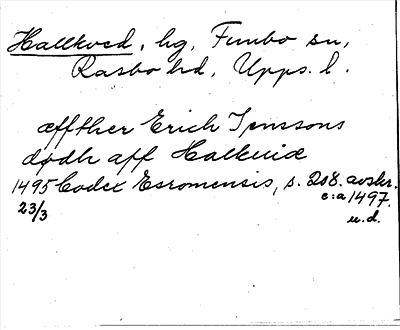 Hallkved, hg, Funbo sn,
Rasbo hd, Upps. l.
æffther Erich Jenssons
dødh aff Halkuid
1495 Codex Esromensis, s. 208. avskr.
23/3 c:a 1497.
u.d.